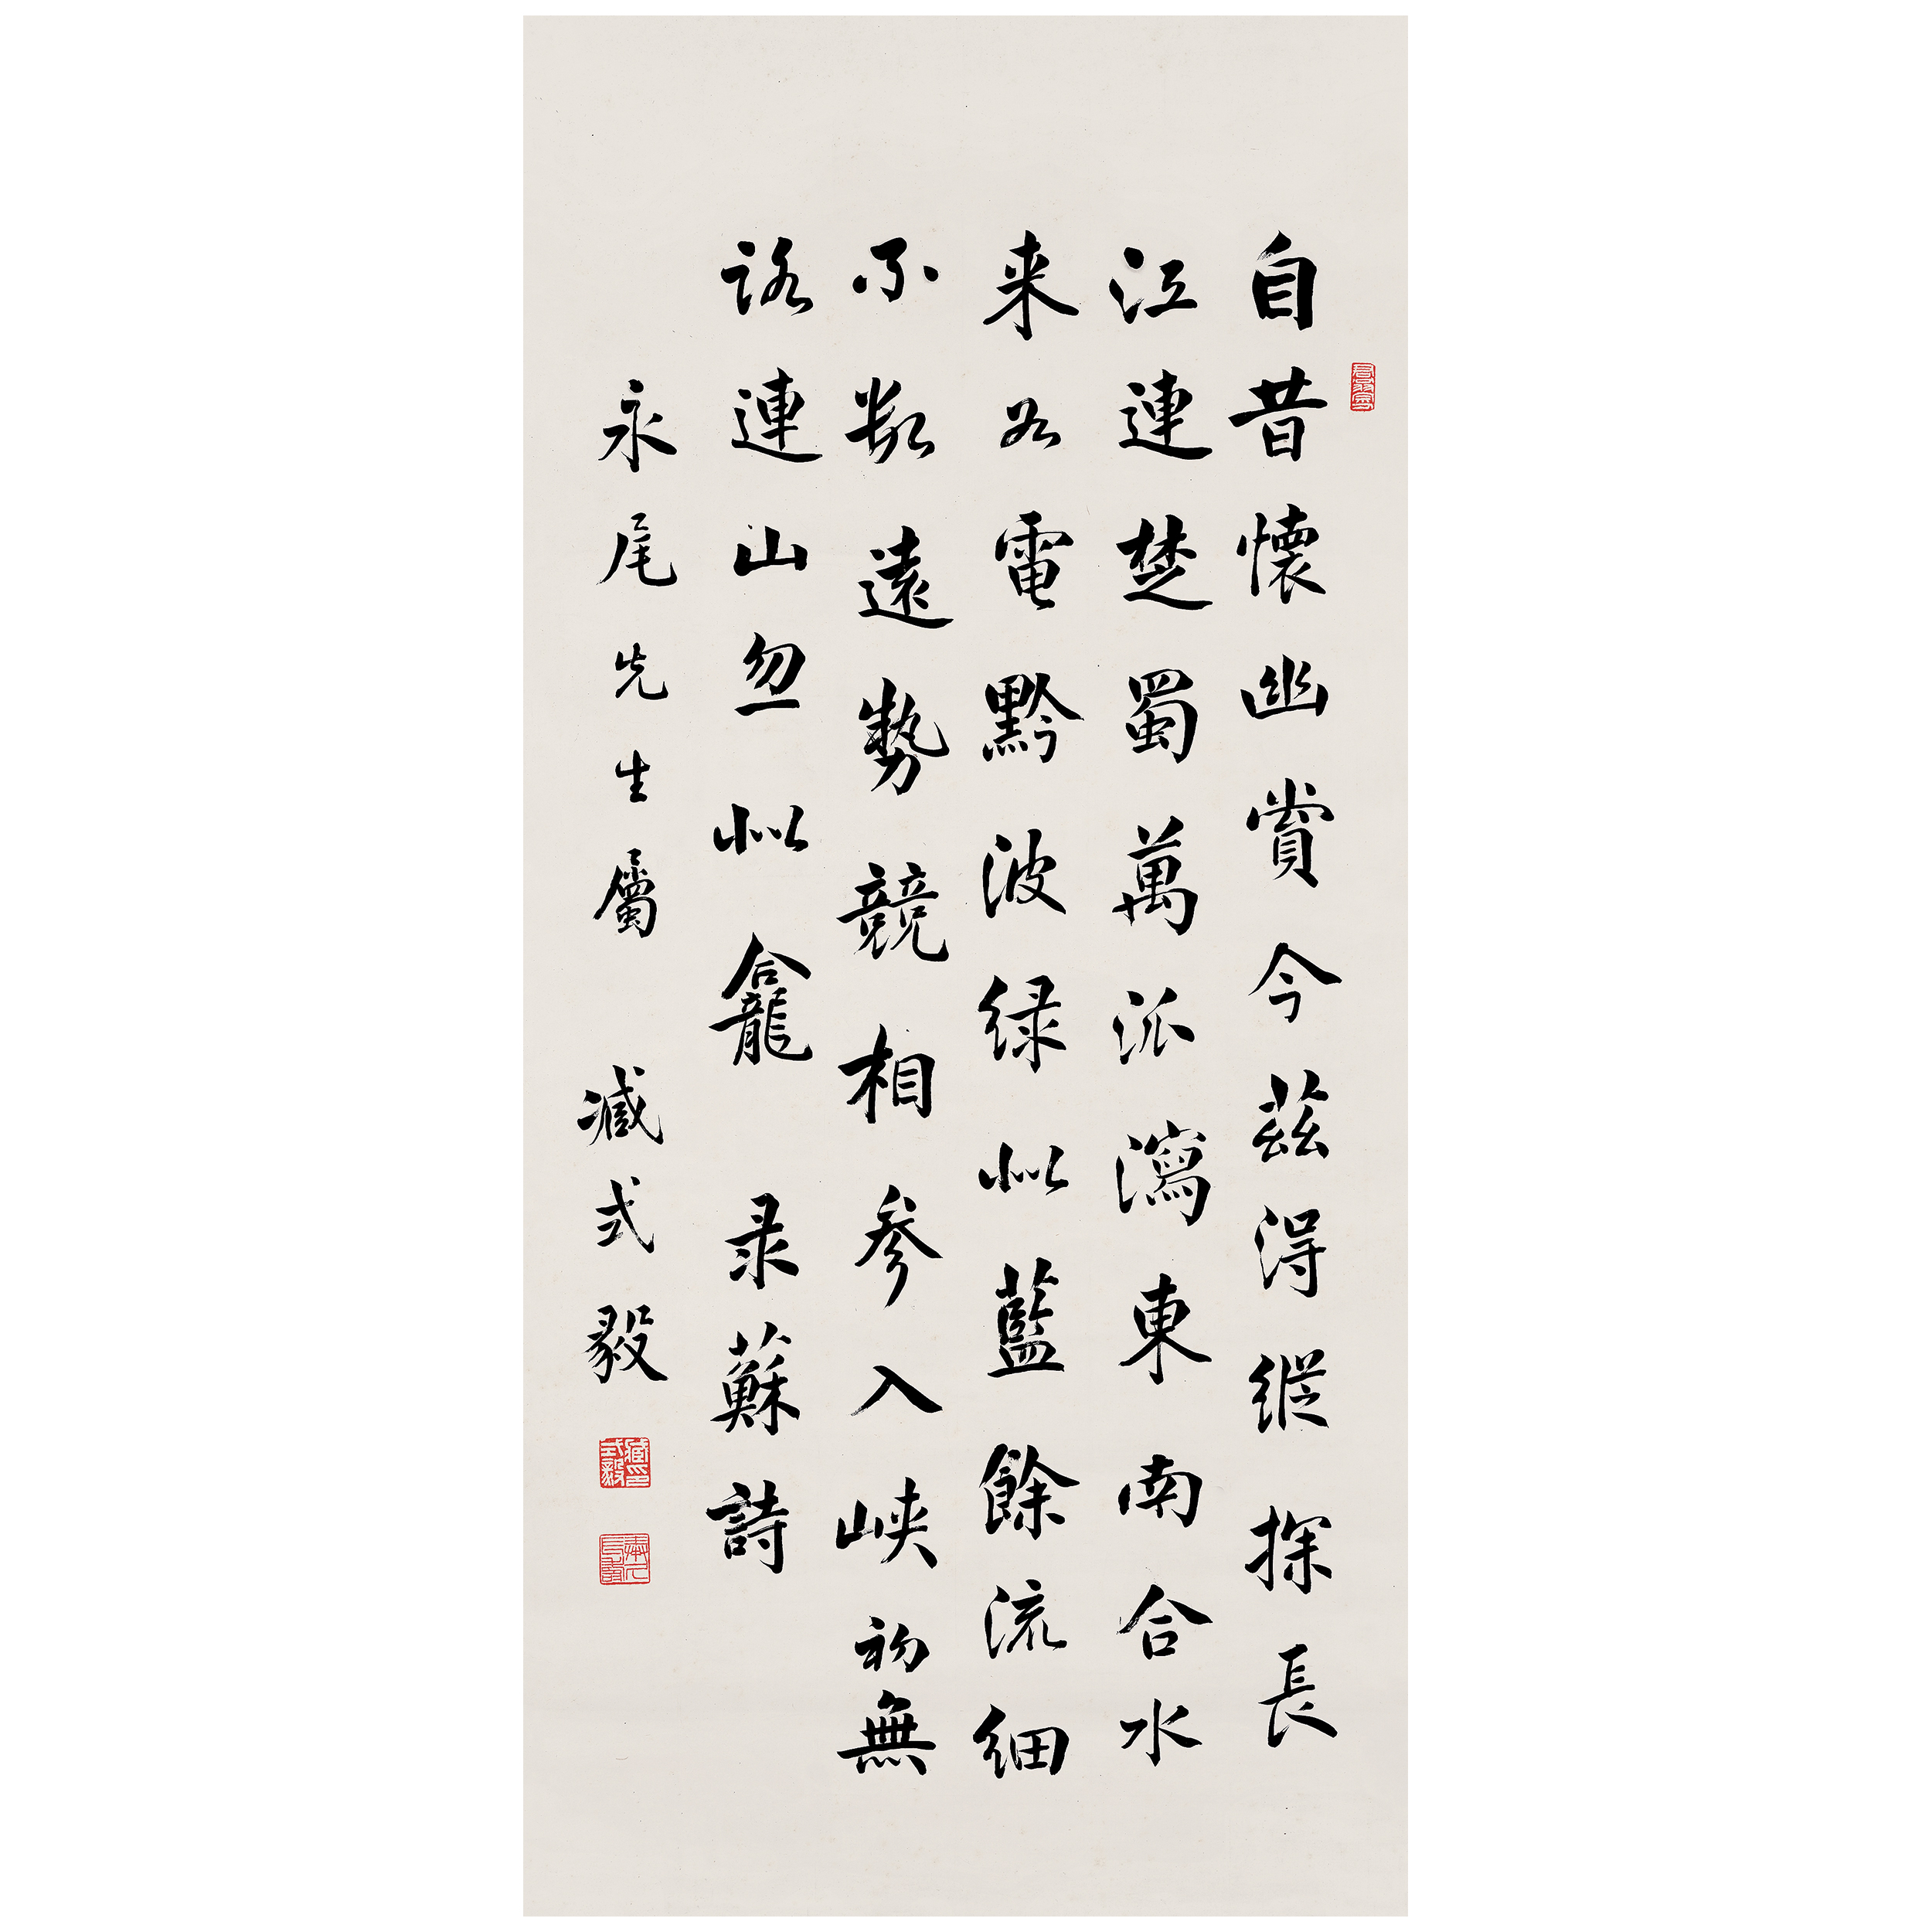 自昔懷幽賞今茲得縱探長
江連楚蜀萬派瀉東南合水
来如電黔波緑似藍餘流細
不數遠勢競相參入峽初無
路連山忽似龕 录蘇詩
永尾先生屬 臧式毅
臧印式毅